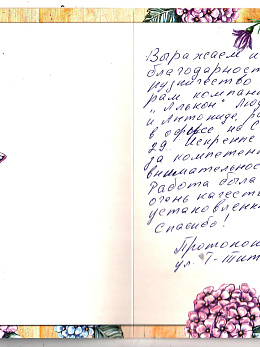 Выражаем и
благодарност
рам компани
"Алькон" Люд
и Антониде, ра
в офисе на С
29. Искренне
за компетен
внимательнос
Работа была
очень качест
установленн
Спасибо!
Протопоп
ул. Т-Тит